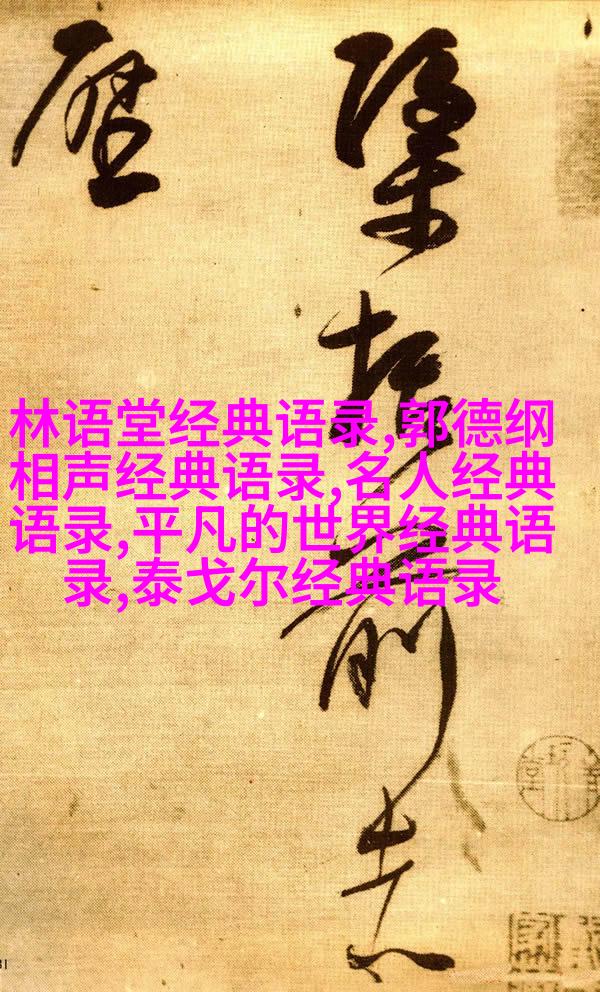 林语堂经典语录,郭德纲
相声经典语录,名人经典
语录,平凡的世界经典语
录,泰戈尔经典语录
括前志
歷